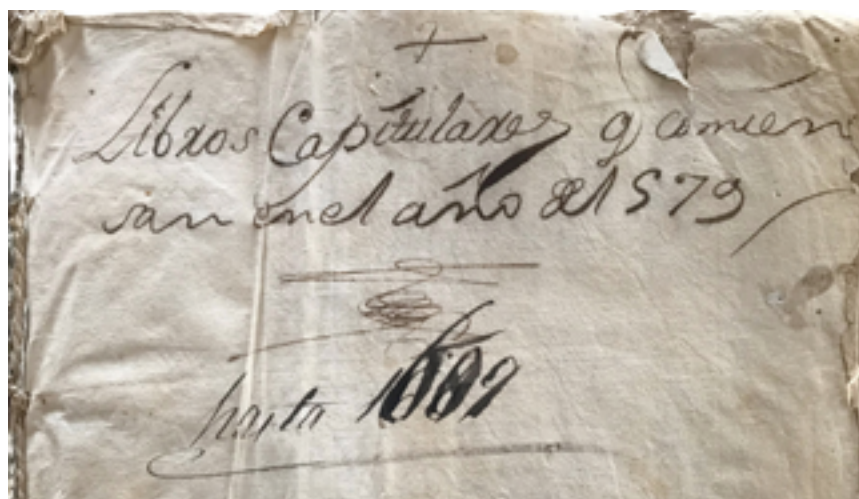 Libros Capitulares q comien
san en el año de 1579
hasta